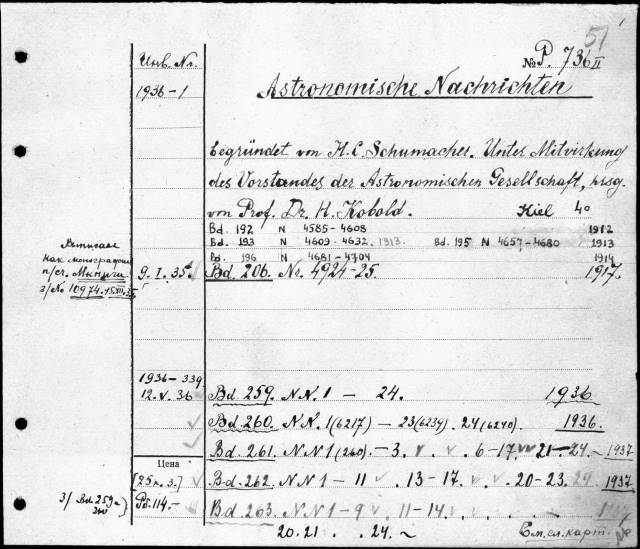 51
Инв. Nr.
№ P. 736 II
1936-1
Astronomische Nachrichten
begründet von H. C. Schumacher. Unter Mitwirkung
des Vorstandes der Astronomischen Gesellschaft, hrsg.
von Prof. Dr. H. Kobold. Kiel 4°
Bd. 192 N 4585-4608 1912
Bd. 193 N 4609-4632, 1913. Bd. 195 N 4657-4680 1913
Bd. 196 N 4681-4704 1914
как монографии
п/сч.
з/№ 10974
9. I. 35 Bd. 206. Nr. 4924-25. 1917.
1936-339
12. V. 36 Bd. 259. N.N. 1 - 24. 1936
Bd. 260. N.N. 1 (6217) - 23 (6239). 24 (6240). 1936.
Bd. 261. N.N 1 (260) - 3. v v. 6-17. vv 21-24. - 1937
Цена
Bd. 262. N.N 1 - 11 v. 13-17. v v. 20-23. 24. 1937
з/ Bd. 259-260 } Рб. 114.- Bd. 263. N.N 1-9 v. 11-14. . . . -
20. 21 . . 24. ~ См. сл. карт.